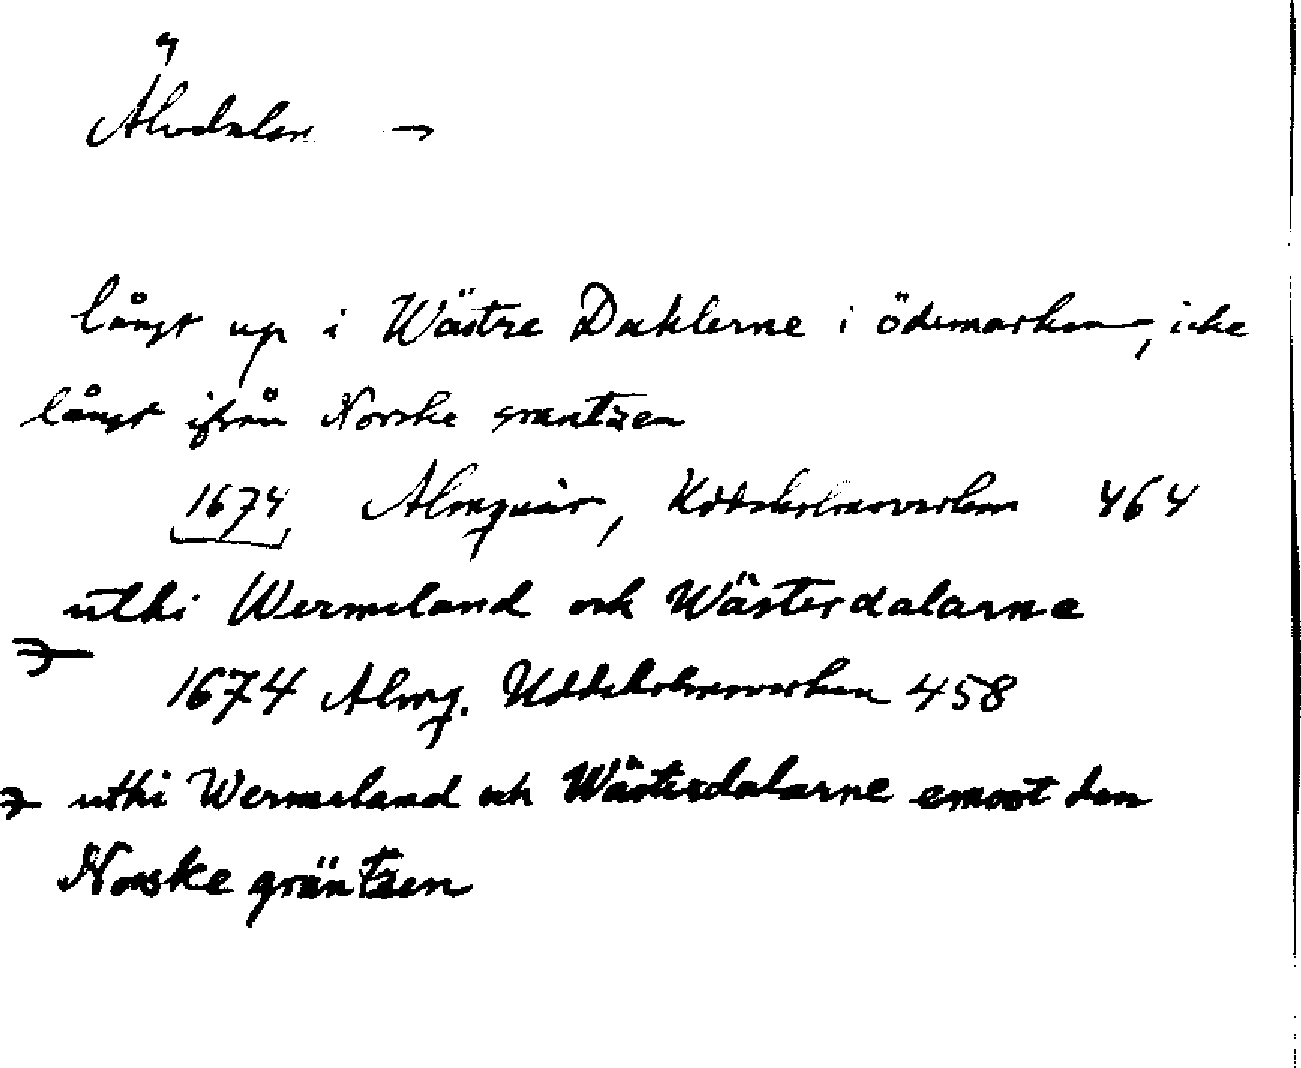 Älvdalen →
långt up i Wästre Dahlerne i ödemarken, icke
långt ifrån Norske grantzen
1674 Almquist, Uddeholmsverken 464
uthi Wermeland och Wästerdalarne
1674 Almq. Uddeholmsverken 458
uthi Wermeland och Wästerdalarne emoot den
Norske gräntzen